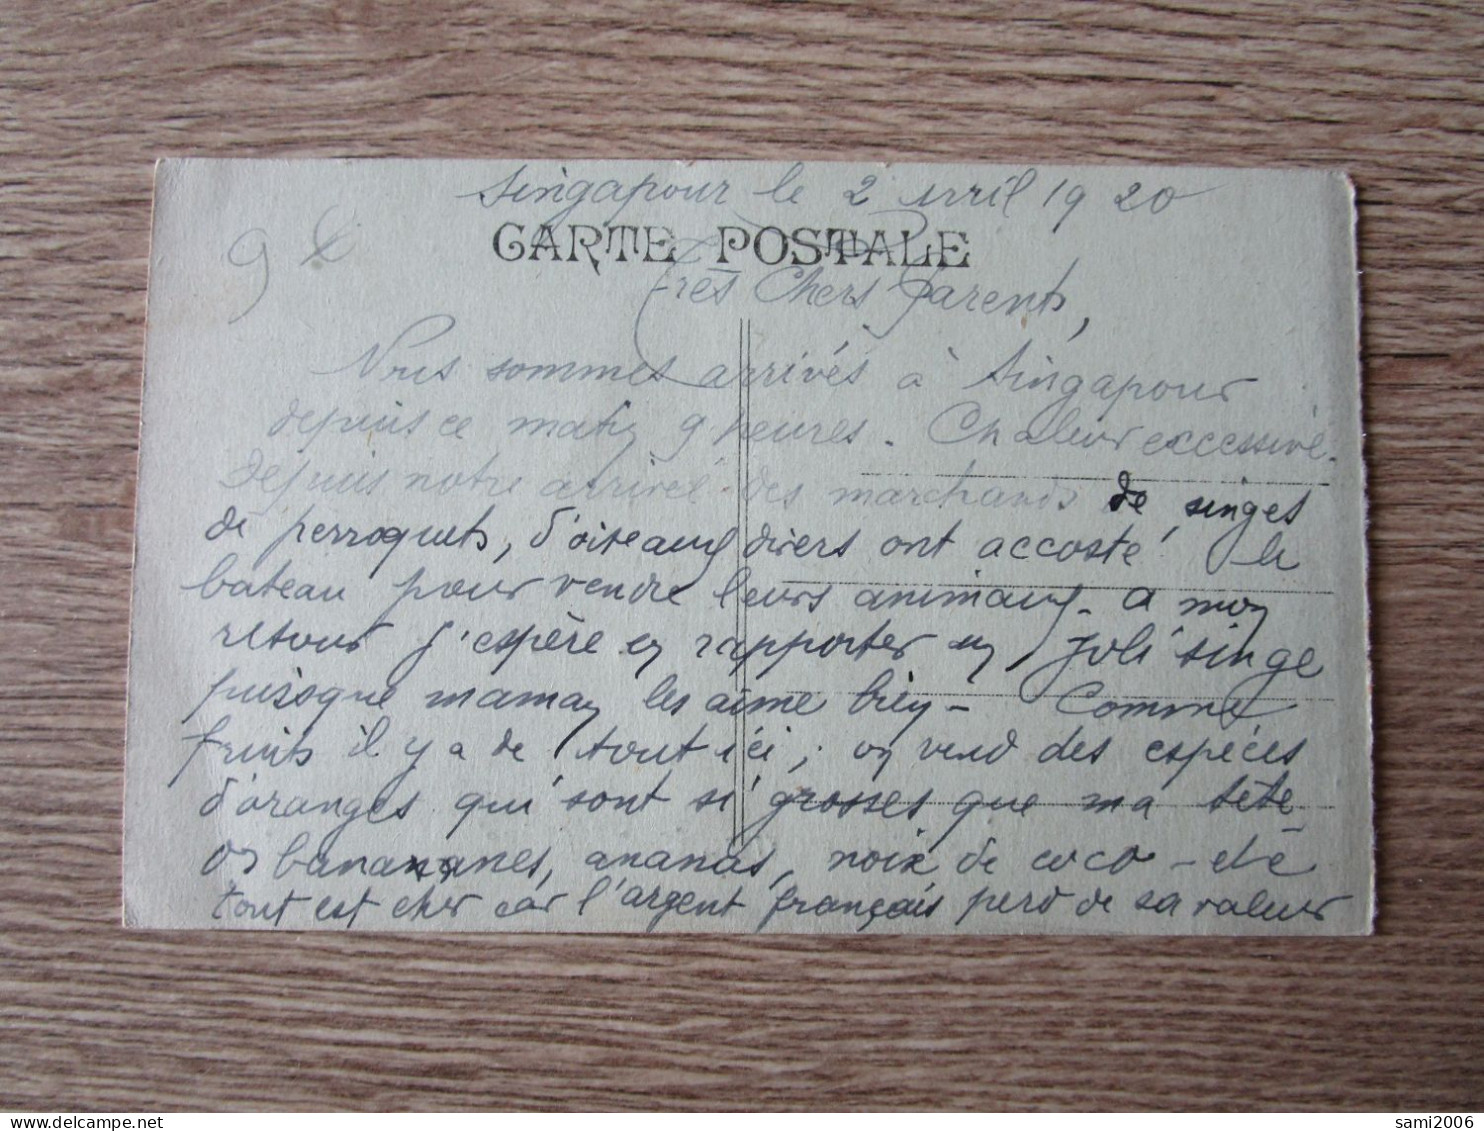 Singapour le 2 Avril 1920
9
CARTE POSTALE
Très Chers Parents,
Nous sommes arrivés à Singapour
depuis ce matin 9 heures. Chaleur excessive.
Depuis notre arrivée des marchands de singes
de perroquets, d'oiseaux divers ont accosté le
bateau pour vendre leurs animaux - a mon
retour j'espère en rapporter un joli singe
puisque maman les aime bien - Comme
fruits il y a de tout ici ; on vend des espèces
d'oranges qui sont si grosses que ma tête
bananes, ananas, noix de coco - etc
tout est cher car l'argent français perd de sa valeur
sami2006